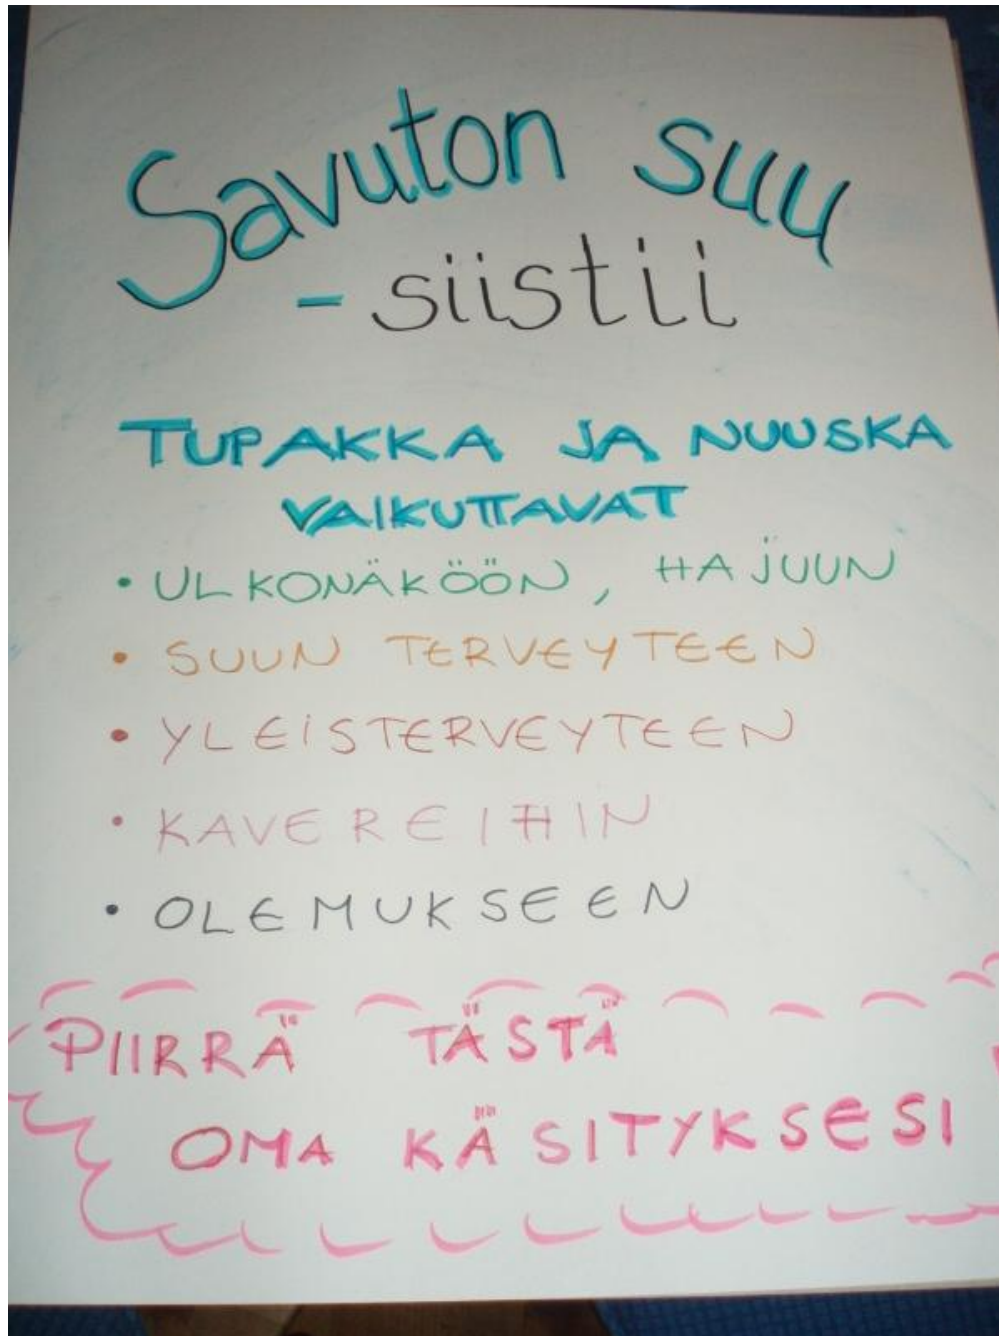 Savuton suu
- siistii
TUPAKKA JA NUUSKA
VAIKUTTAVAT
• ULKONÄKÖÖN, HAJUUN
• SUUN TERVEYTEEN
• YLEISTERVEYTEEN
• KAVEREIHIN
• OLEMUKSEEN
PIIRRÄ TÄSTÄ
OMA KÄSITYKSESI